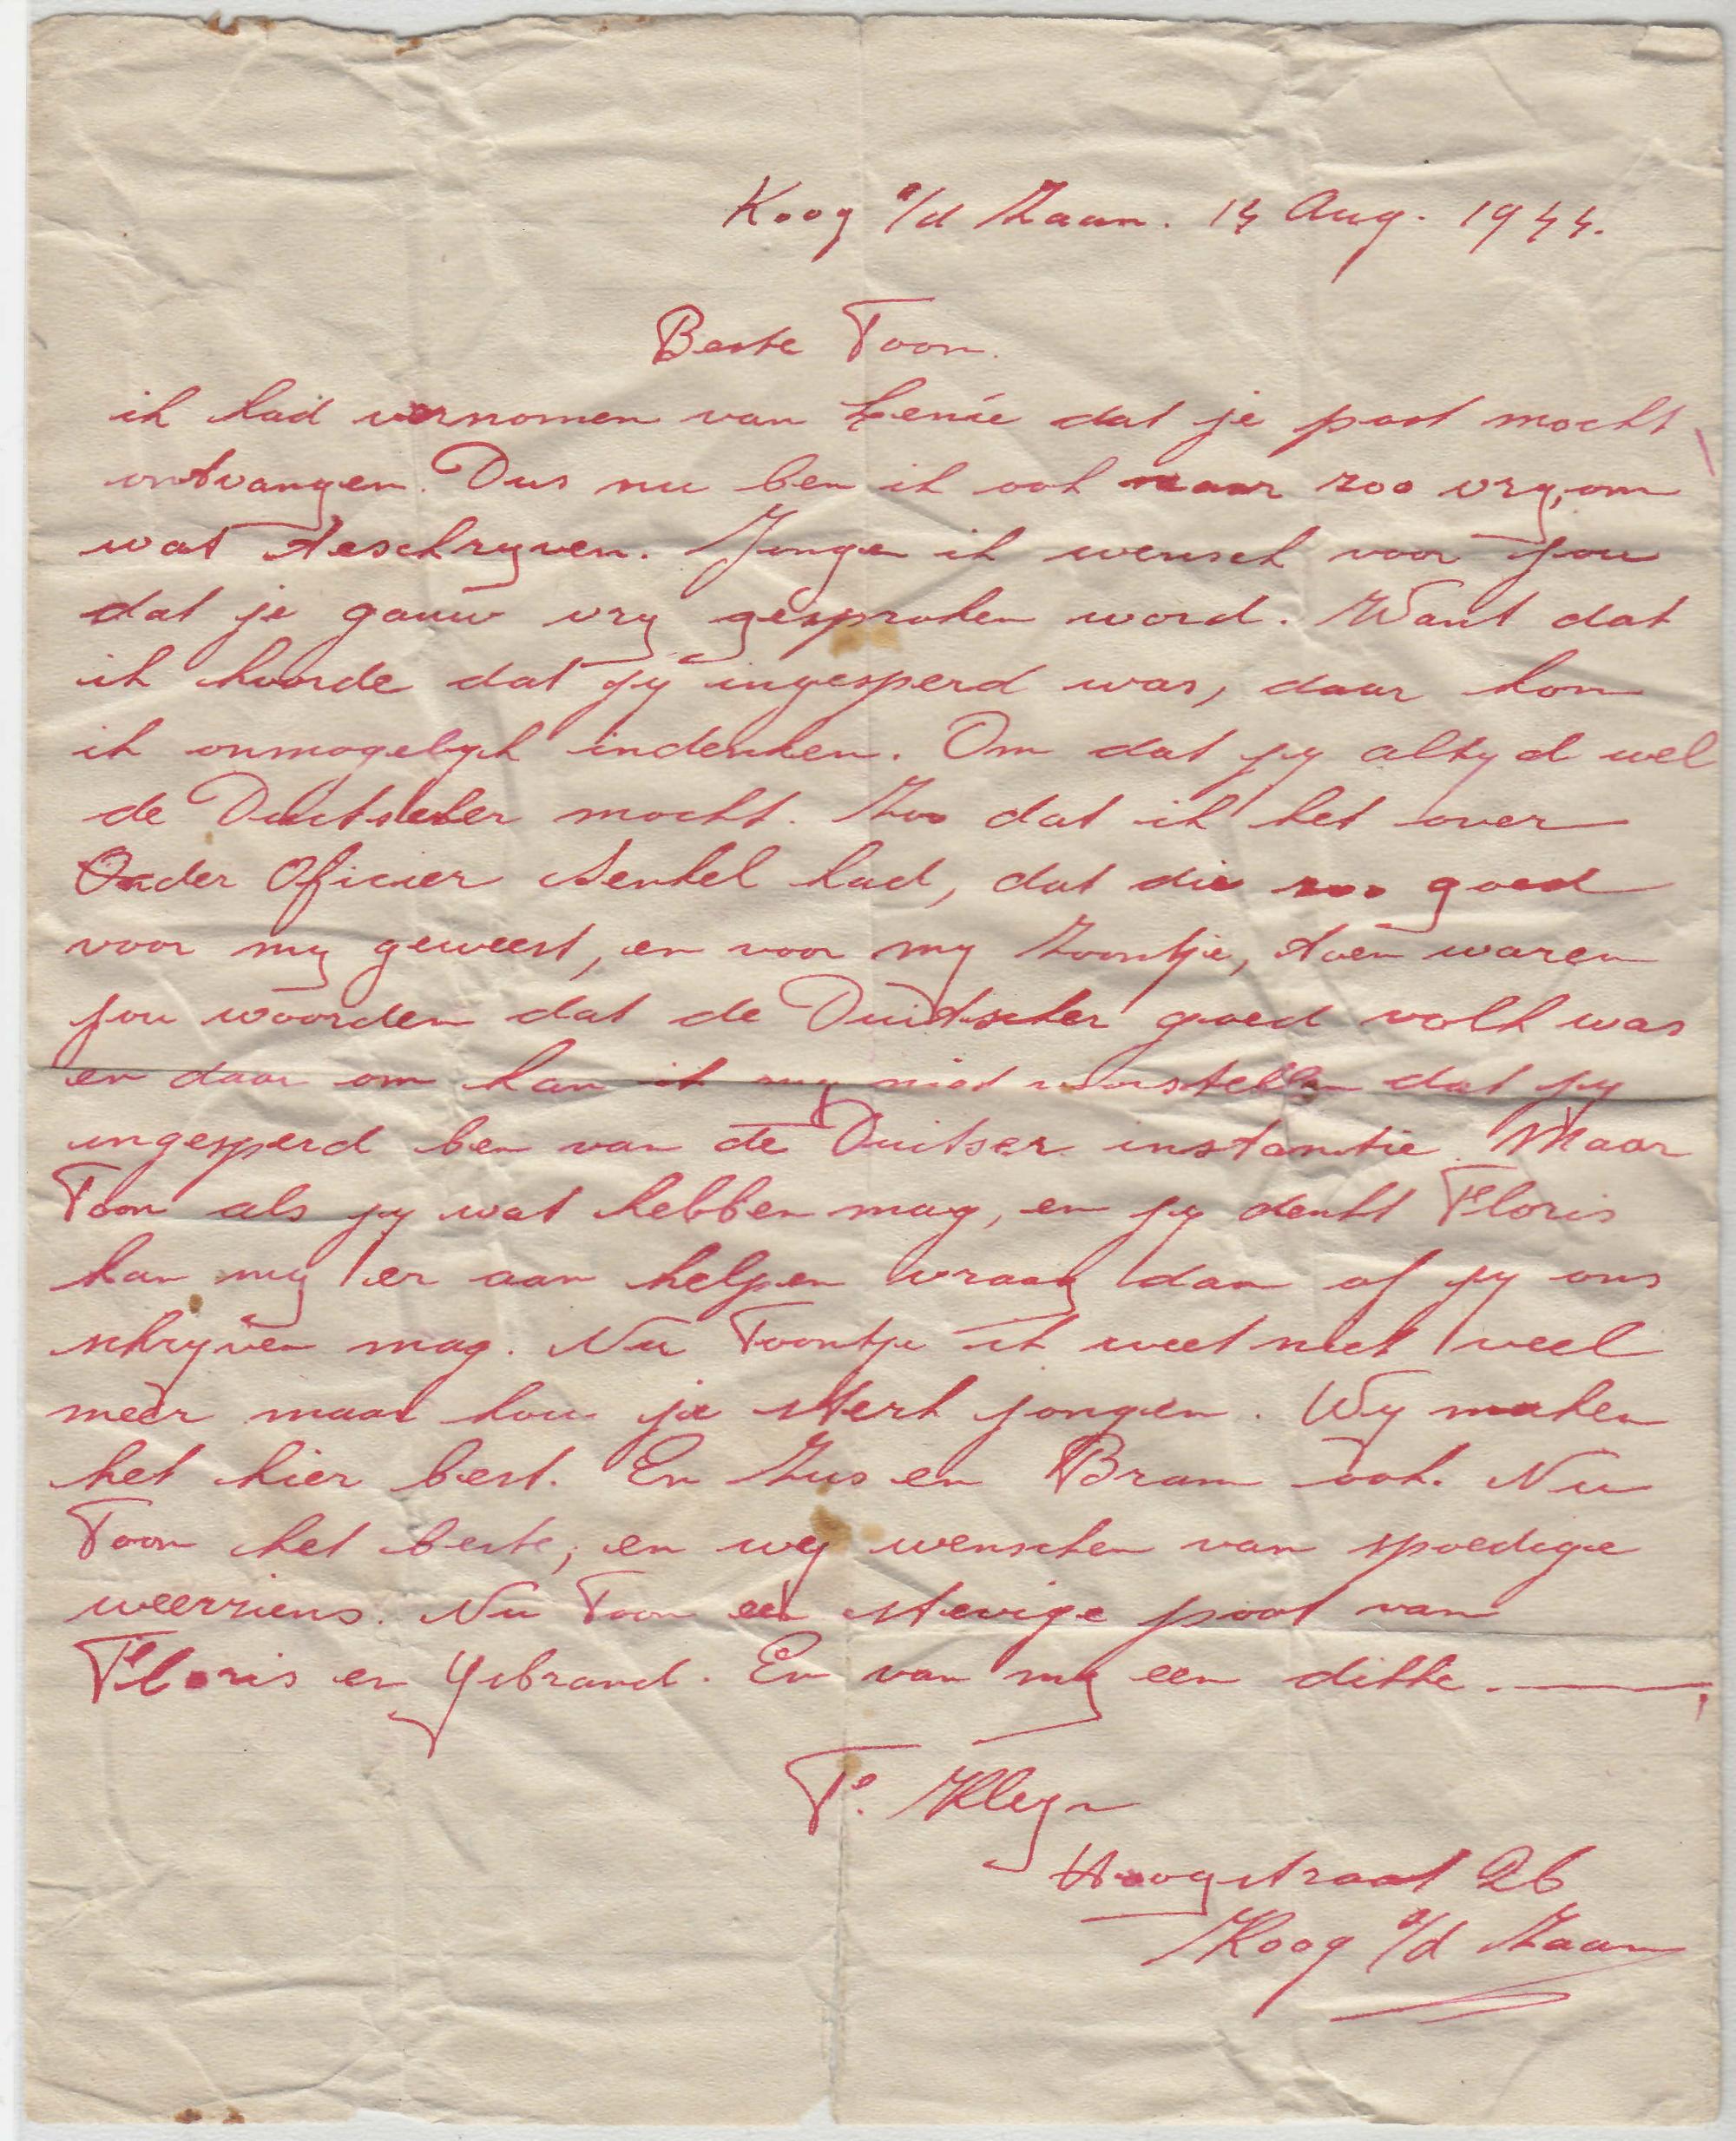 Koog a/d Zaan. 14 Aug. 1944.
Beste Toon.
ik had vernomen van Lenie dat je post mocht
ontvangen. Dus nu ben ik ook maar zoo vry, om
wat teschryven. Jongen ik wensch voor jou
dat je gauw vry gesproken word. Want dat
ik hoorde dat jy ingesperd was, daar kon
ik onmogelyk indenken. Om dat jy altyd wel
de Duitscher mocht. Zoo dat ik het over
Onder Oficier Senkel had, dat die zoo goed
voor my geweest, en voor my Zoontje, toen waren
jou woorden dat de Duitscher goed volk was
en daar om kan ik my niet voorstellen dat jy
ingesperd ben van de Duitser instantie. Maar
Toon als jy wat hebben mag, en jy denkt Floris
kan my er aan helpen vraag dan of jy ons
schryven mag. Nu Toontje ik weet niet veel
meer maar hou je sterk jongen. Wy maken
het hier best. En Zus en Bram ook. Nu
Toon het beste, en wy wenschen van spoedige
weerziens. Nu Toon een stevige poot van
Floris en Ysbrand. En van my een dikke.
F. Kleyn
Hoogstraat 26
Koog a/d Zaan